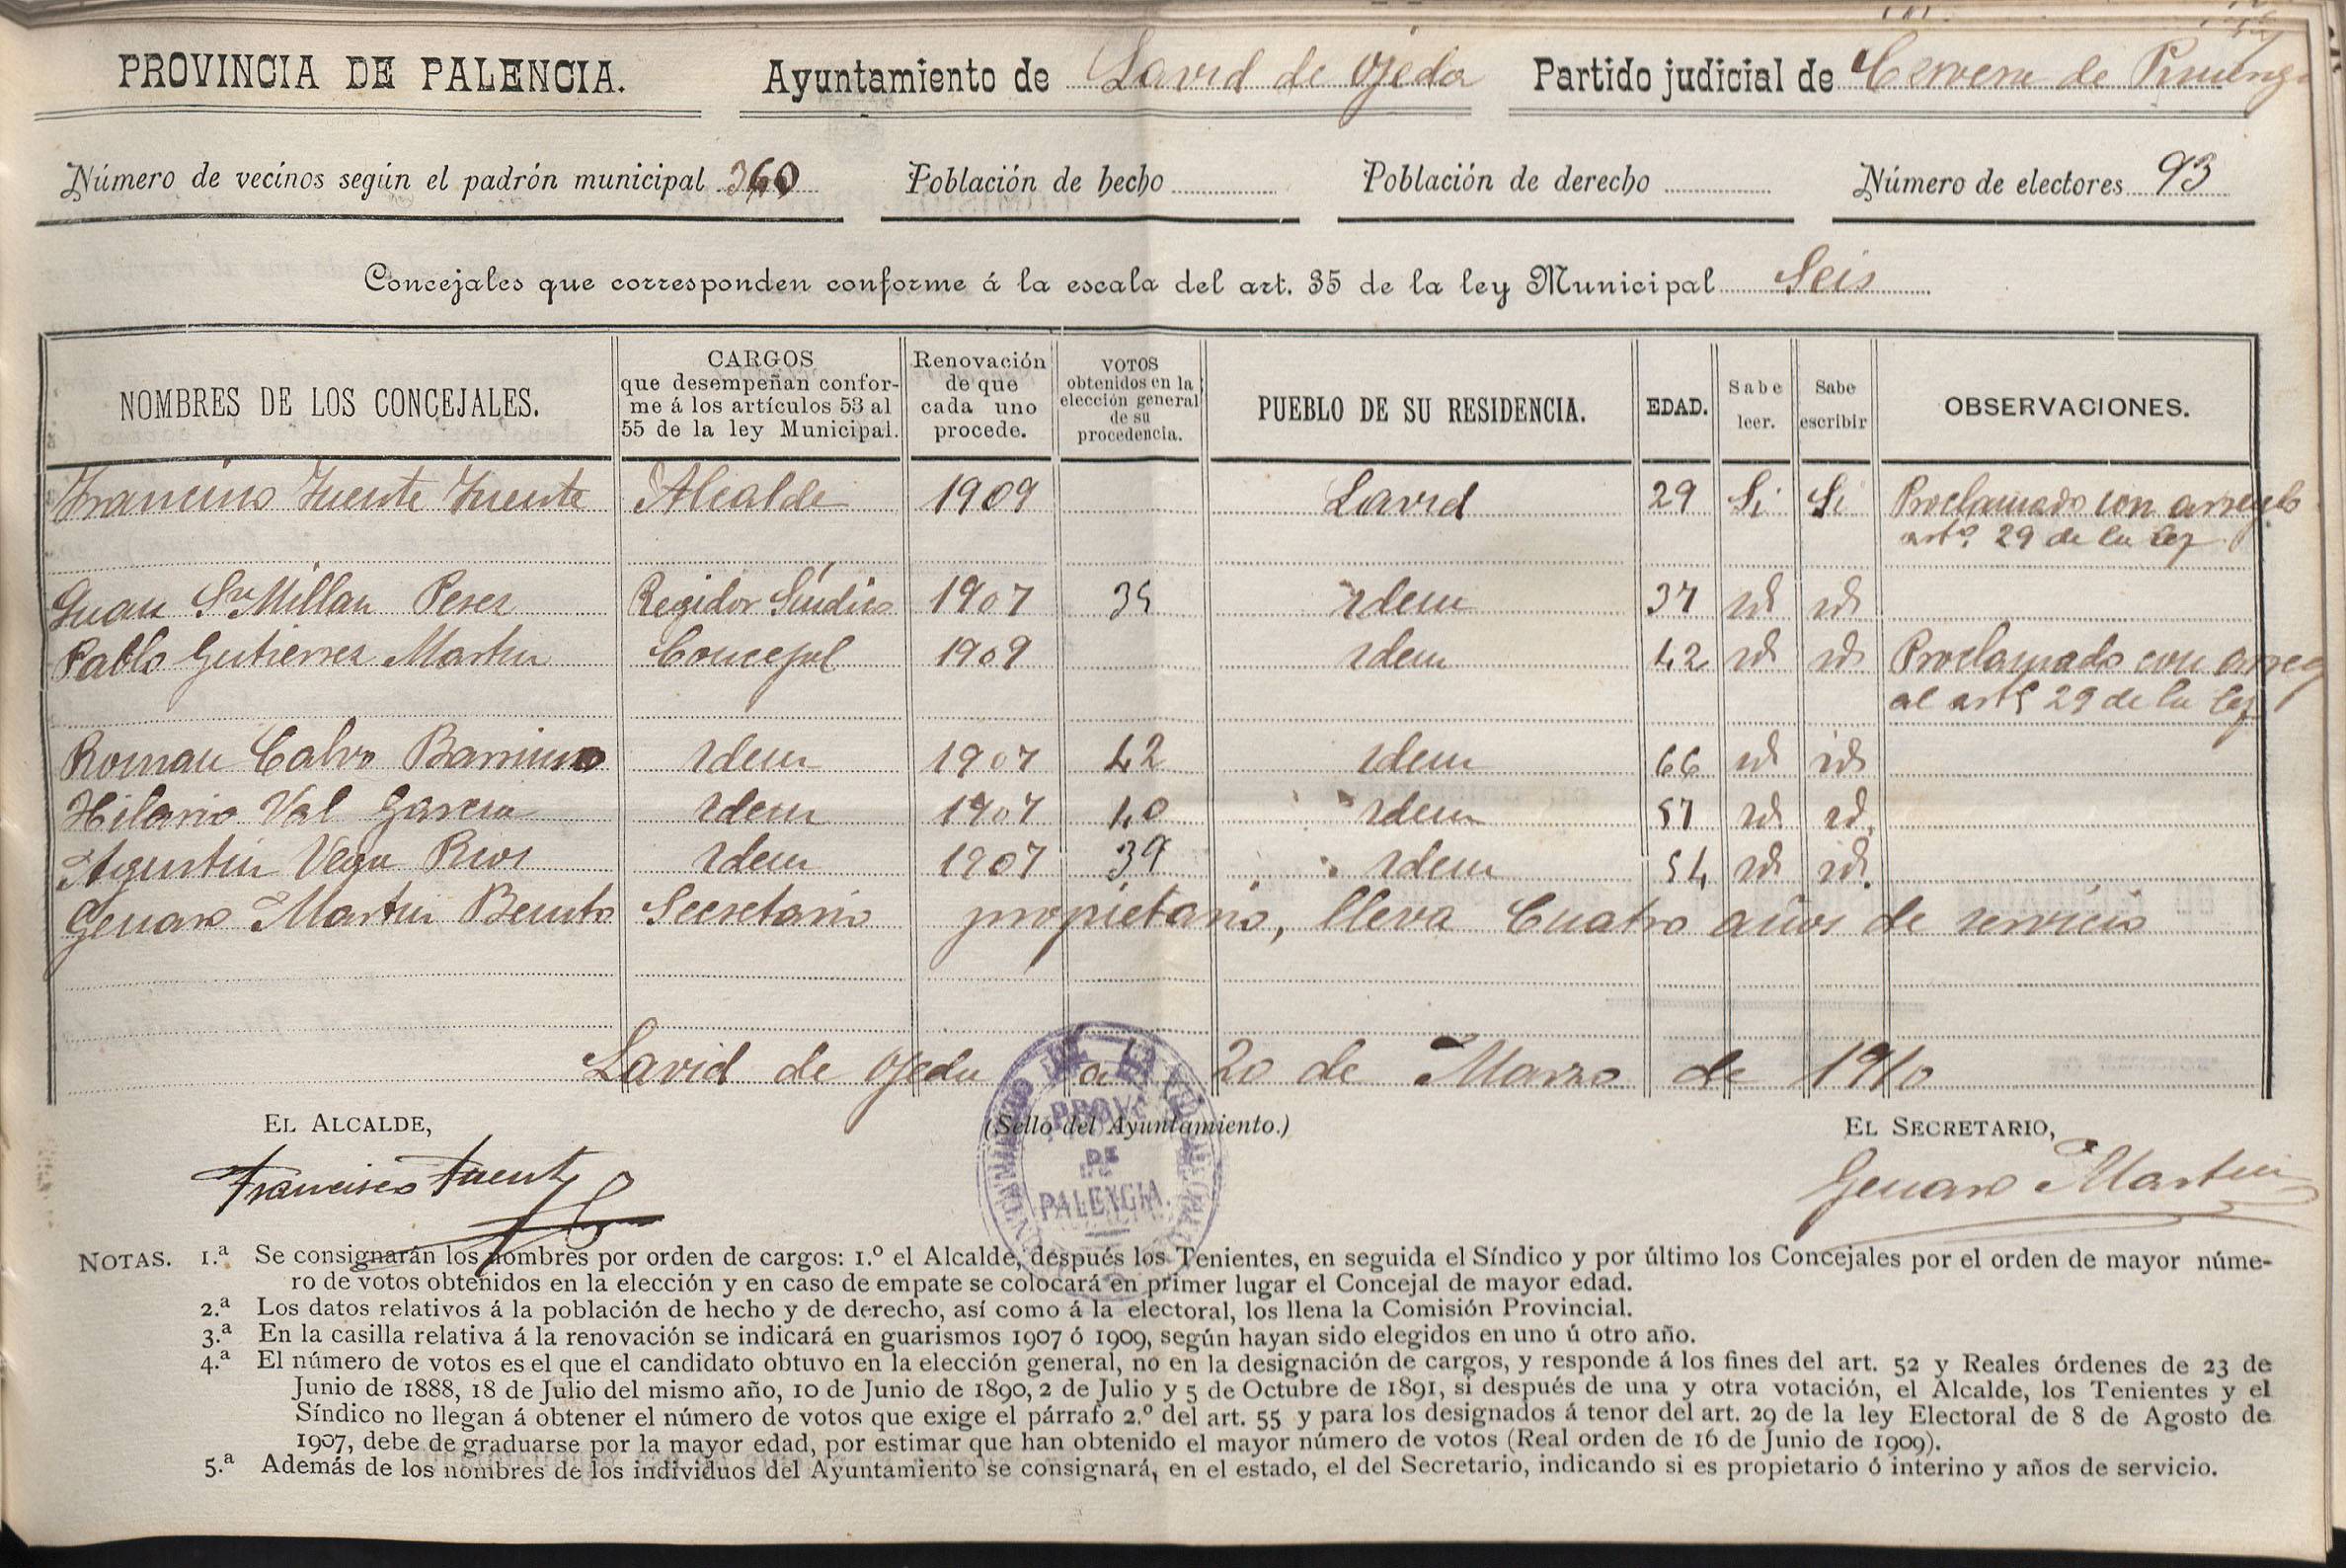 PROVINCIA DE PALENCIA. Ayuntamiento de Lavid de Ojeda Partido judicial de Cervera de
Número de vecinos según el padrón municipal 360 Población de hecho Población de derecho Número de electores 93
Concejales que corresponden conforme á la escala del art. 35 de la ley Municipal Seis
NOMBRES DE LOS CONCEJALES. CARGOS que desempeñan confor- me á los artículos 53 al 55 de la ley Municipal. Renovación de que cada uno procede. VOTOS obtenidos en la elección general de su procedencia. PUEBLO DE SU RESIDENCIA. EDAD. Sabe leer. Sabe escribir OBSERVACIONES.
Francisco Fuente Fuente Alcalde 1909 Lavid 29 Si Si Proclamado con arreglo
artº 29 de la ley
Juan Sn Millan Perez Regidor Síndico 1907 35 idem 37 id id
Pablo Gutierrez Martin Concejal 1909 idem 42 id id Proclamado con arreg
al artº 29 de la ley
Roman Calvo idem 1907 42 idem 66 id id
Hilario Val Garcia idem 1907 40 idem 57 id id.
Agustin Vega Rios idem 1907 39 idem 54 id id.
Genaro Martin Benito Secretario propietario, lleva Cuatro años de servicio
Lavid de Ojeda a 20 de Marzo de 1910
EL ALCALDE, (Sello del Ayuntamiento.) EL SECRETARIO,
PROVª
DE
PALENCIA.
Francisco Fuente Genaro Martin
NOTAS. 1.ª Se consignarán los nombres por orden de cargos: 1.º el Alcalde, después los Tenientes, en seguida el Síndico y por último los Concejales por el orden de mayor núme-
ro de votos obtenidos en la elección y en caso de empate se colocará en primer lugar el Concejal de mayor edad.
2.ª Los datos relativos á la población de hecho y de derecho, así como á la electoral, los llena la Comisión Provincial.
3.ª En la casilla relativa á la renovación se indicará en guarismos 1907 ó 1909, según hayan sido elegidos en uno ú otro año.
4.ª El número de votos es el que el candidato obtuvo en la elección general, no en la designación de cargos, y responde á los fines del art. 52 y Reales órdenes de 23 de
Junio de 1888, 18 de Julio del mismo año, 10 de Junio de 1890, 2 de Julio y 5 de Octubre de 1891, si después de una y otra votación, el Alcalde, los Tenientes y el
Síndico no llegan á obtener el número de votos que exige el párrafo 2.º del art. 55 y para los designados á tenor del art. 29 de la ley Electoral de 8 de Agosto de
1907, debe de graduarse por la mayor edad, por estimar que han obtenido el mayor número de votos (Real orden de 16 de Junio de 1909).
5.ª Además de los nombres de los individuos del Ayuntamiento se consignará, en el estado, el del Secretario, indicando si es propietario ó interino y años de servicio.